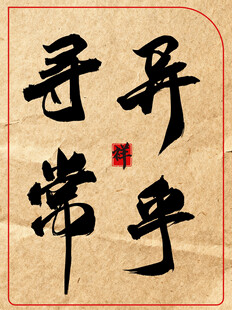 异乎
寻常
祥